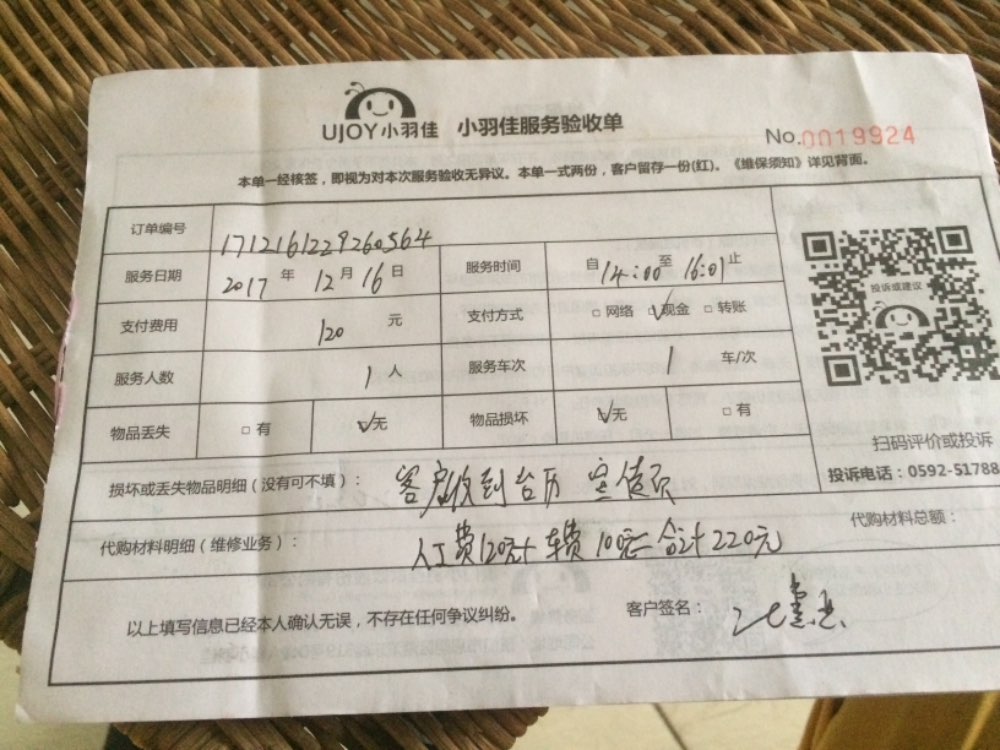 UJOY小羽佳 小羽佳服务验收单
No.0019924
本单一经核签，即视为对本次服务验收无异议。本单一式两份，客户留存一份(红)。《维保须知》详见背面。
订单编号 1712161229260564
服务日期 2017年12月16日 服务时间 自14:00至16:01止
支付费用 120元 支付方式 □网络 ☑现金 □转账
服务人数 1人 服务车次 1车/次
物品丢失 □有 ☑无 物品损坏 ☑无 □有
投诉或建议
扫码评价或投诉
投诉电话：0592-51788
损坏或丢失物品明细（没有可不填）： 客户收到台历
代购材料明细（维修业务）： 人工费120元+车费100元=合计220元
代购材料总额：
以上填写信息已经本人确认无误，不存在任何争议纠纷。 客户签名：